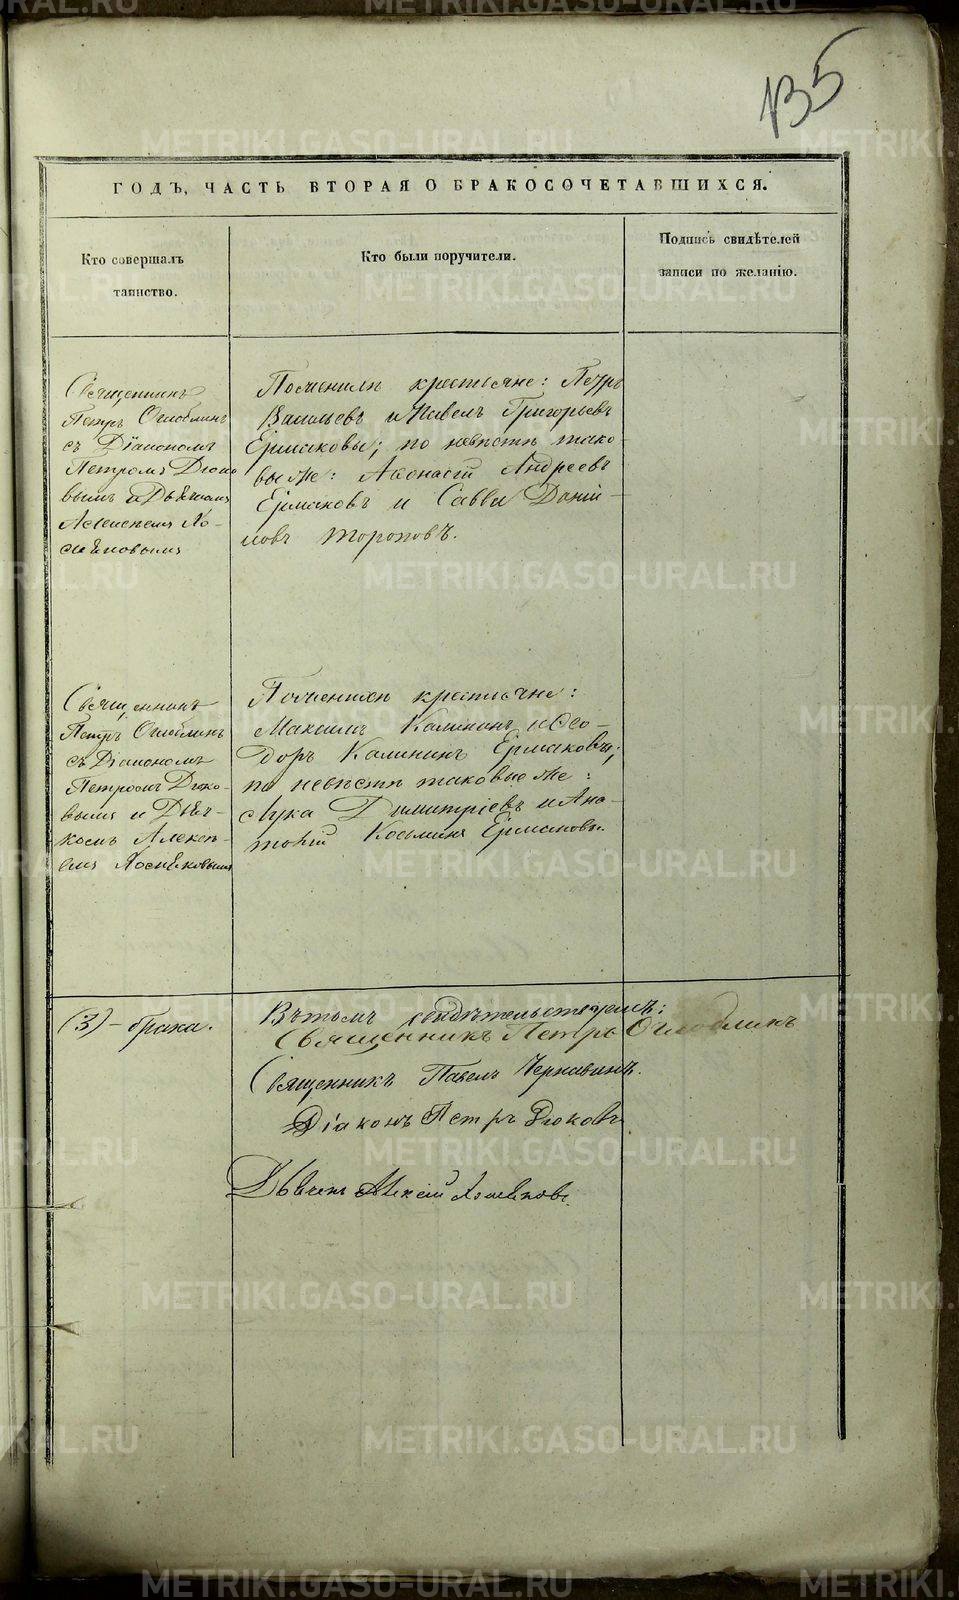 135
ГОДЪ, ЧАСТЬ ВТОРАЯ О БРАКОСОЧЕТАВШИХСЯ.
Кто совершалъ
таинство.
Кто были поручители.
Подпись свидѣтелей
записи по желанію.
Священникъ
Петръ Оглоблинъ
съ Діакономъ
Петромъ Дюко
вымъ и Дьячкомъ
Алексѣемъ Хо-
Поженихѣ крестьяне: Петръ
Васильевъ и Павелъ Григорьевъ
Ермаковы; по невѣстѣ тако-
вые же: Аѳонасій Андреевъ
Ермаковъ и Савва Даніи-
ловъ Тороповъ.
Священникъ
Петръ Оглоблинъ
съ Діакономъ
Петромъ Дюко-
вымъ и Дьяч-
комъ Алексѣ-
емъ
Поженихѣ крестьяне:
Максимъ Калининъ и Ѳео-
доръ Калининъ Ермаковы;
по невѣстѣ таковые же:
Лука Димитріевъ и Ана-
толій Козьминъ Ермаковы.
(3) - брака.
Въ томъ свидѣтельствуемъ:
Священникъ Петръ Оглоблинъ
Священникъ Павелъ Чернавинъ.
Діаконъ Петръ Дюковъ
Дьячекъ Алексій
METRIKI.GASO-URAL.RU